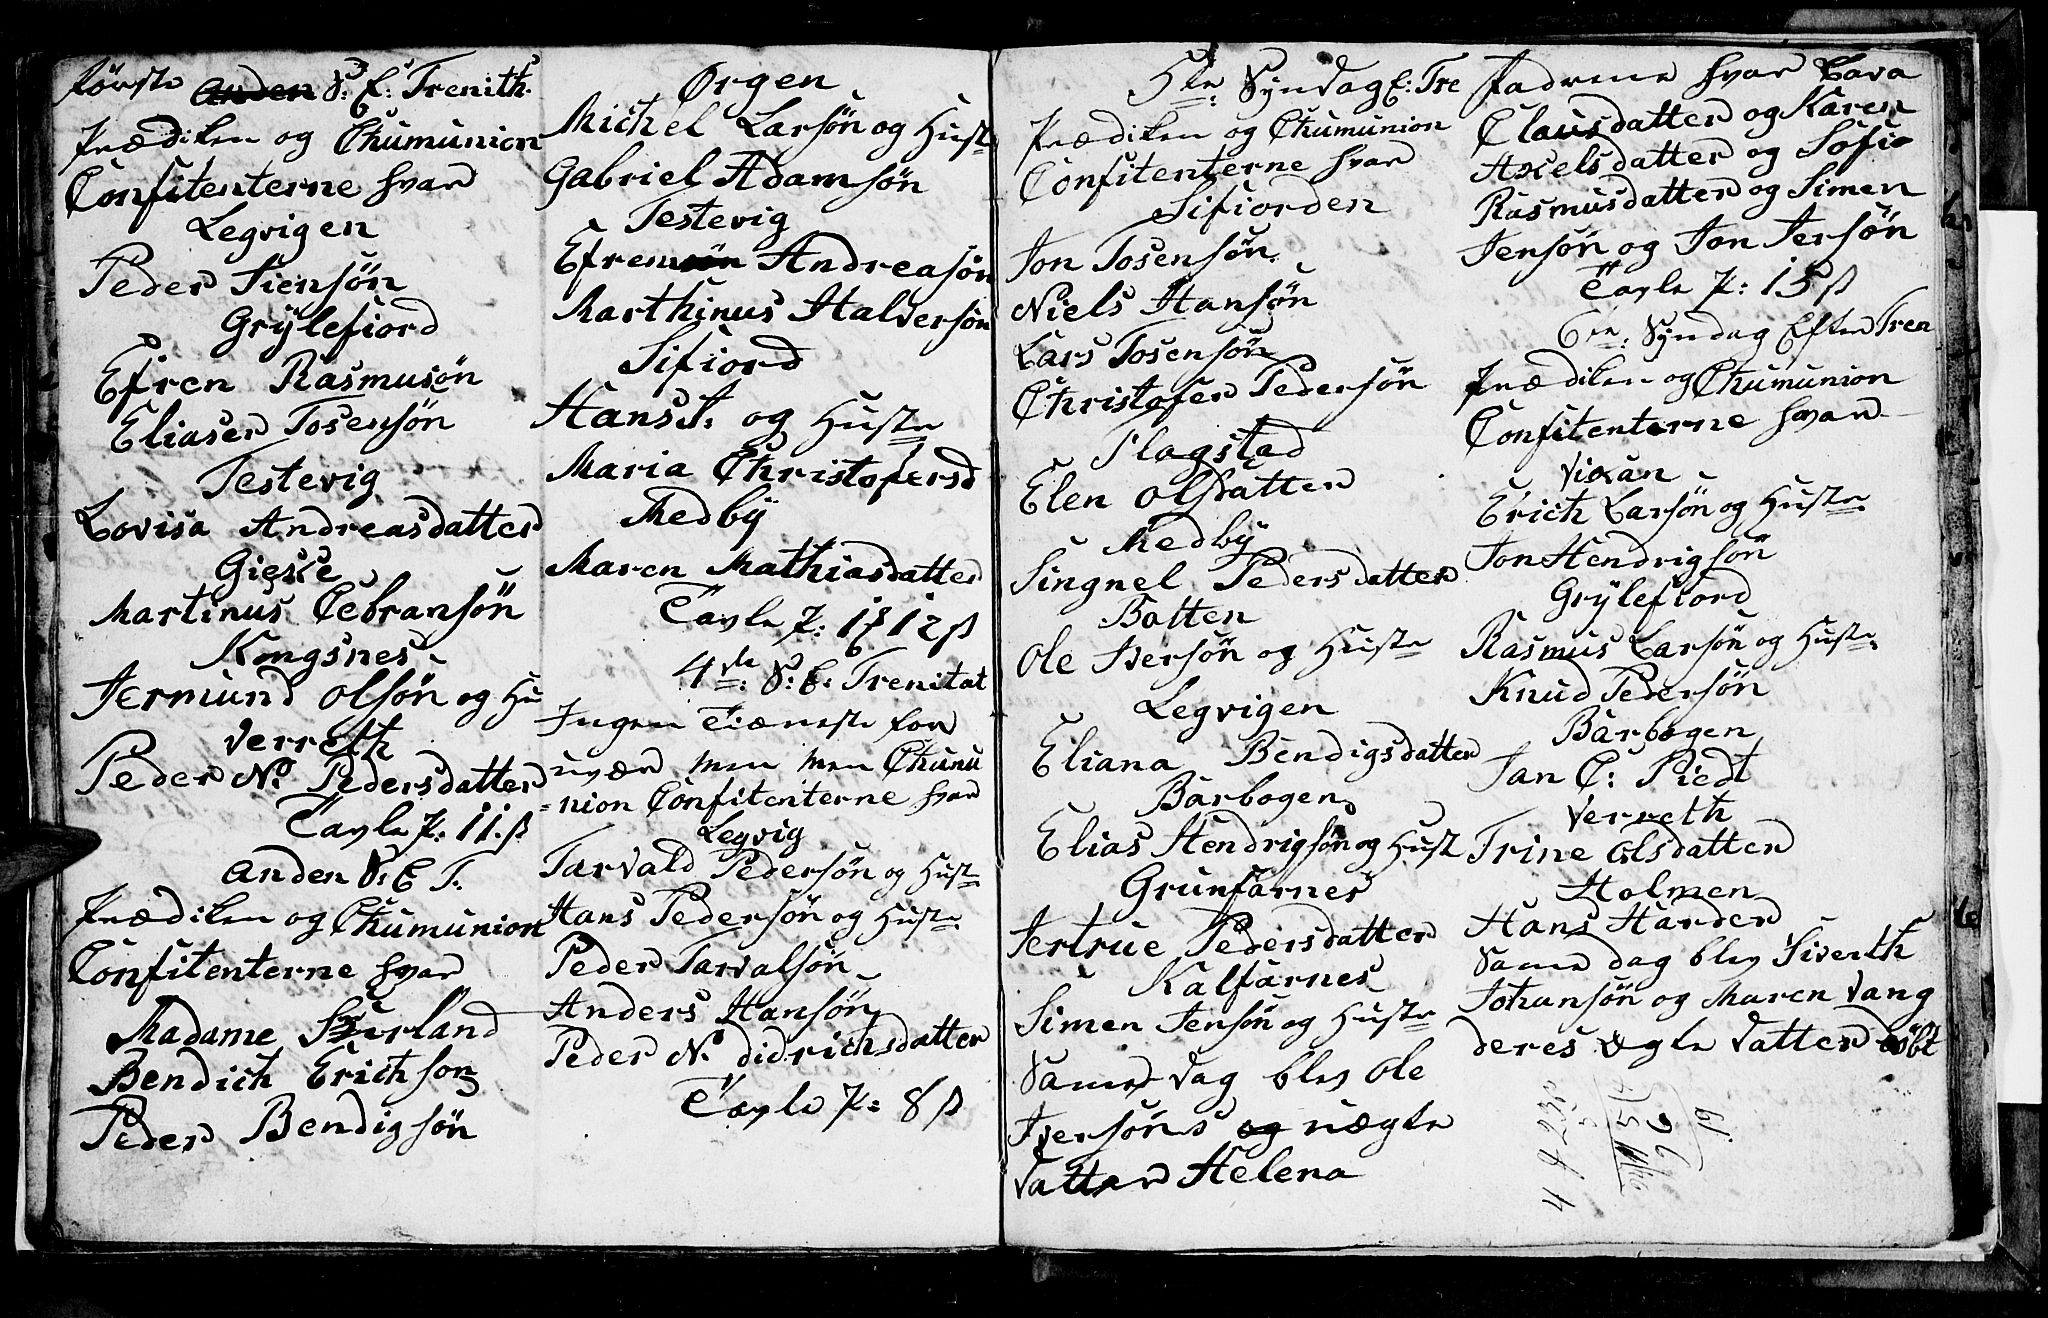 første Anden S: E: Trenith.
Prædiken og Chumunion
Confitenterne hvar
Legvigen
Peder Siensön
Grÿlefiord
Efren Rasmusön
Eliaser Tosensön
Testevig
Lovisa Andreasdatter
Gieske
Martinus Cebransön
Kongsnes
Jermund olsön og Hu
Verreth
Peder No Pedersdatter
Tavle P: 11 ß
Anden S: E T:
Prædiken og Chumunion
Confitenterne hvar
Madame Sürland
Bendich Erichson
Peder Bendigsön
Ørgen
Michel Larsön og Hust
Gabriel Adamsön
Testevig
Efrem Andreasön
Marthinus Halversön
Sifiord
Hans A: og Huste
Maria Christofersd
Medbÿ
Maren Mathiasdatter
Tavle P: 1 12 ß
4de: S: E: Trenitat
Ingen Tiæneste for
uvær men men Chumu
=nion Confitenterne hvar
Legvig
Tarvald Pedersön og Huste
Hans Pedersön og Huste
Peder Tarvalsön
Anders Hansön
Peder No didrichsdatter
Tavle P: 8 ß
5te: Syndag E: Tre
Prædiken og Chumunion
Confitenterne hvar
Sifiorden
Jon Tosensön
Niels Hansön
Lars Tosensön
Christofer Pedersön
Flagstad
Elen olsdatter
Medbÿ
Singnel Pedersdatter
Botten
Ole Iversön og Huste
Legvigen
Eliana Bendigsdatter
Barbogen
Elias Hendrigsön og Hust
Grunfarnes
Jertrue Pedersdatter
Kalfarnes
Simen Jensön og Huste
Samme dag blev Ole
Iversöns og uægte
datter Helena
Fadrene hvar Lava
Clausdatter og Karen
Axelsdatter og Sofie
Rasmusdatter og Simen
Jensön og Jon Jersön
Tavle P: 15 ß
6te: Syndag Efter Tren
Prædiken og Chumunion
Confitenterne hvar
Erich Larsön og Huste
Jon Hendrigsön
Grÿlefiord
Rasmus Larsön og Huste
Knud Pedersön
Barbogen
Jan C: Piedt
Verreth
Trine Olsdatter
Holmen
Hans Harder
Samme dag blev Siverth
Johansön og Maren Vang
deres ægte datter döbt